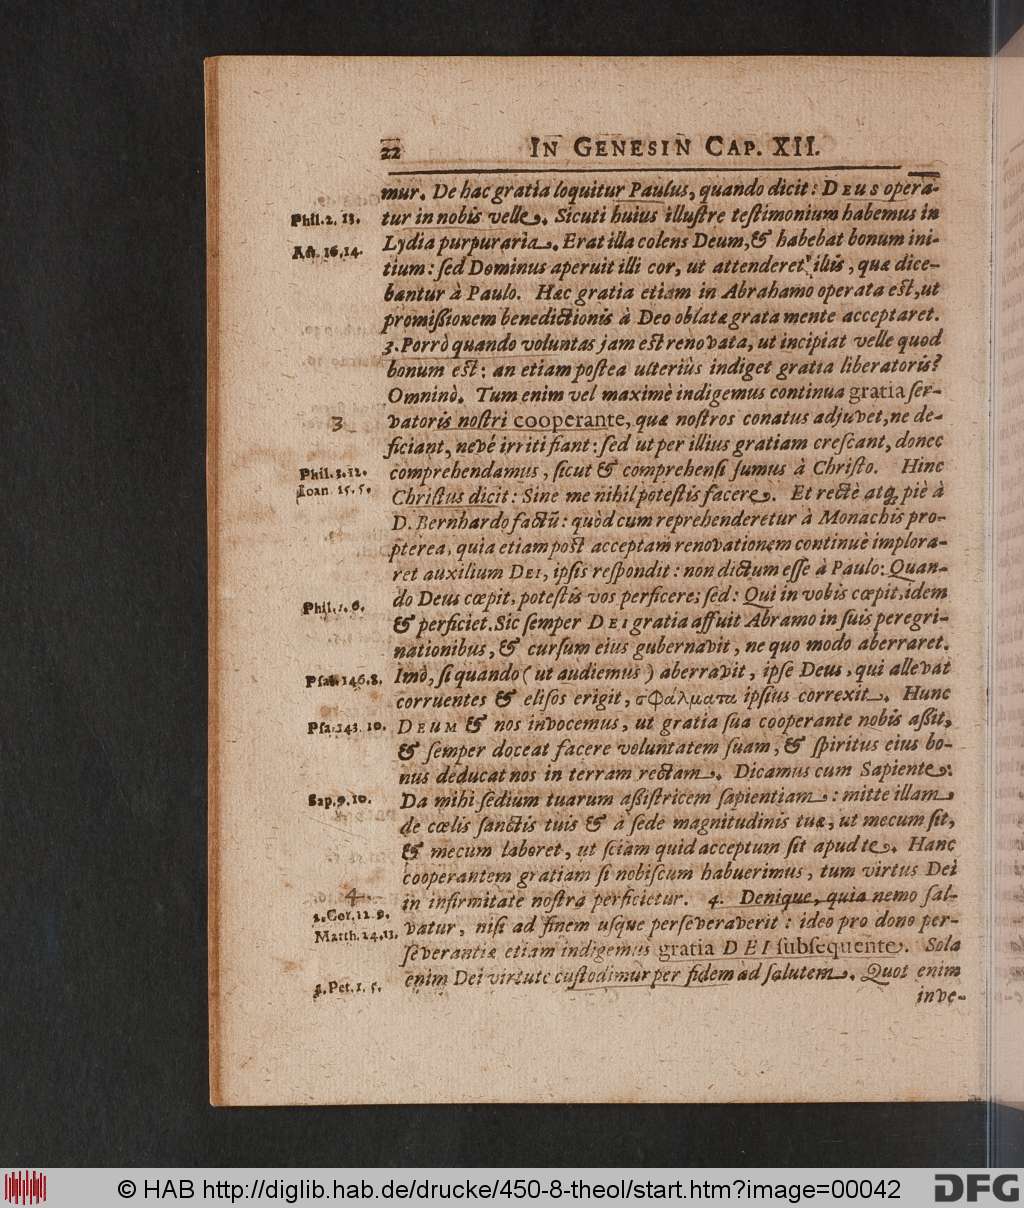 22 IN GENESIN CAP. XII.
mur. De hac gratia loquitur Paulus, quando dicit: DEUS opera-
Phil. 2. 13. tur in nobis velle. Sicuti huius illuſtre teſtimonium habemus in
Act. 16. 14. Lydia purpuraria. Erat illa colens Deum, & habebat bonum ini-
tium: ſed Dominus aperuit illi cor, ut attenderet iliis, quæ dice-
bantur à Paulo. Hæc gratia etiam in Abrahamo operata eſt, ut
promiſſionem benedictionis à Deo oblatæ grata mente acceptaret.
3. Porrò quando voluntas jam eſt renovata, ut incipiat velle quod
bonum eſt: an etiam poſtea ulteriùs indiget gratia liberatoris?
Omninò. Tum enim vel maximè indigemus continua gratia ſer-
3 vatoris noſtri cooperante, quæ noſtros conatus adjuvet, ne de-
ficiant, nevé irriti fiant: ſed ut per illius gratiam creſcant, donec
Phil. 3. 12. comprehendamus, ſicut & comprehenſi ſumus à Chriſto. Hinc
Ioan. 15. 5. Chriſtus dicit: Sine me nihil poteſtis facere. Et rectè atq́; piè à
D. Bernhardo factū: quòd cum reprehenderetur à Monachis pro-
pterea, quia etiam poſt acceptam renovationem continuè implora-
ret auxilium DEI, ipſis reſpondit: non dictum eſſe à Paulo: Quan-
Phil. 1. 6. do Deus cœpit, poteſtis vos perficere; ſed: Qui in vobis cœpit, idem
& perficiet. Sic ſemper DEI gratia affuit Abramo in ſuis peregri-
nationibus, & curſum eius gubernavit, ne quo modo aberraret.
Pſal. 146. 8. Imò, ſi quando (ut audiemus) aberravit, ipſe Deus, qui allevat
corruentes & eliſos erigit, σφάλματα ipſius correxit. Hunc
Pſa. 143. 10. DEUM & nos invocemus, ut gratia ſua cooperante nobis aſſit,
& ſemper doceat facere voluntatem ſuam, & ſpiritus eius bo-
nus deducat nos in terram rectam. Dicamus cum Sapiente:
Sap. 9. 10. Da mihi ſedium tuarum aſſiſtricem ſapientiam: mitte illam
de cœlis ſanctis tuis & à ſede magnitudinis tuæ, ut mecum ſit,
& mecum laboret, ut ſciam quid acceptum ſit apud te. Hanc
cooperantem gratiam ſi nobiſcum habuerimus, tum virtus Dei
4. in infirmitate noſtra perficietur. 4. Denique, quia nemo ſal-
2. Cor. 12. 9. vatur, niſi ad finem uſque perſeveraverit: ideo pro dono per-
Matth. 24. 13. ſeverantiæ etiam indigemus gratia DEI ſubſequente. Sola
1. Pet. 1. 5. enim Dei virtute cuſtodimur per fidem ad ſalutem. Quot enim
inve-
© HAB http://diglib.hab.de/drucke/450-8-theol/start.htm?image=00042
DFG